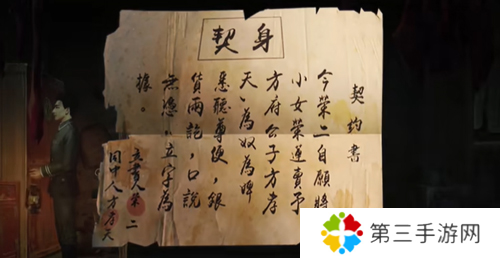 身契
契約書
今榮二自願將
小女榮蓮賣予
方府公子方孝
天、為奴為婢
悉聽尊便,銀
貨兩訖,口說
無憑,立字為
據。
立書人榮二
同中人方
第三手游网